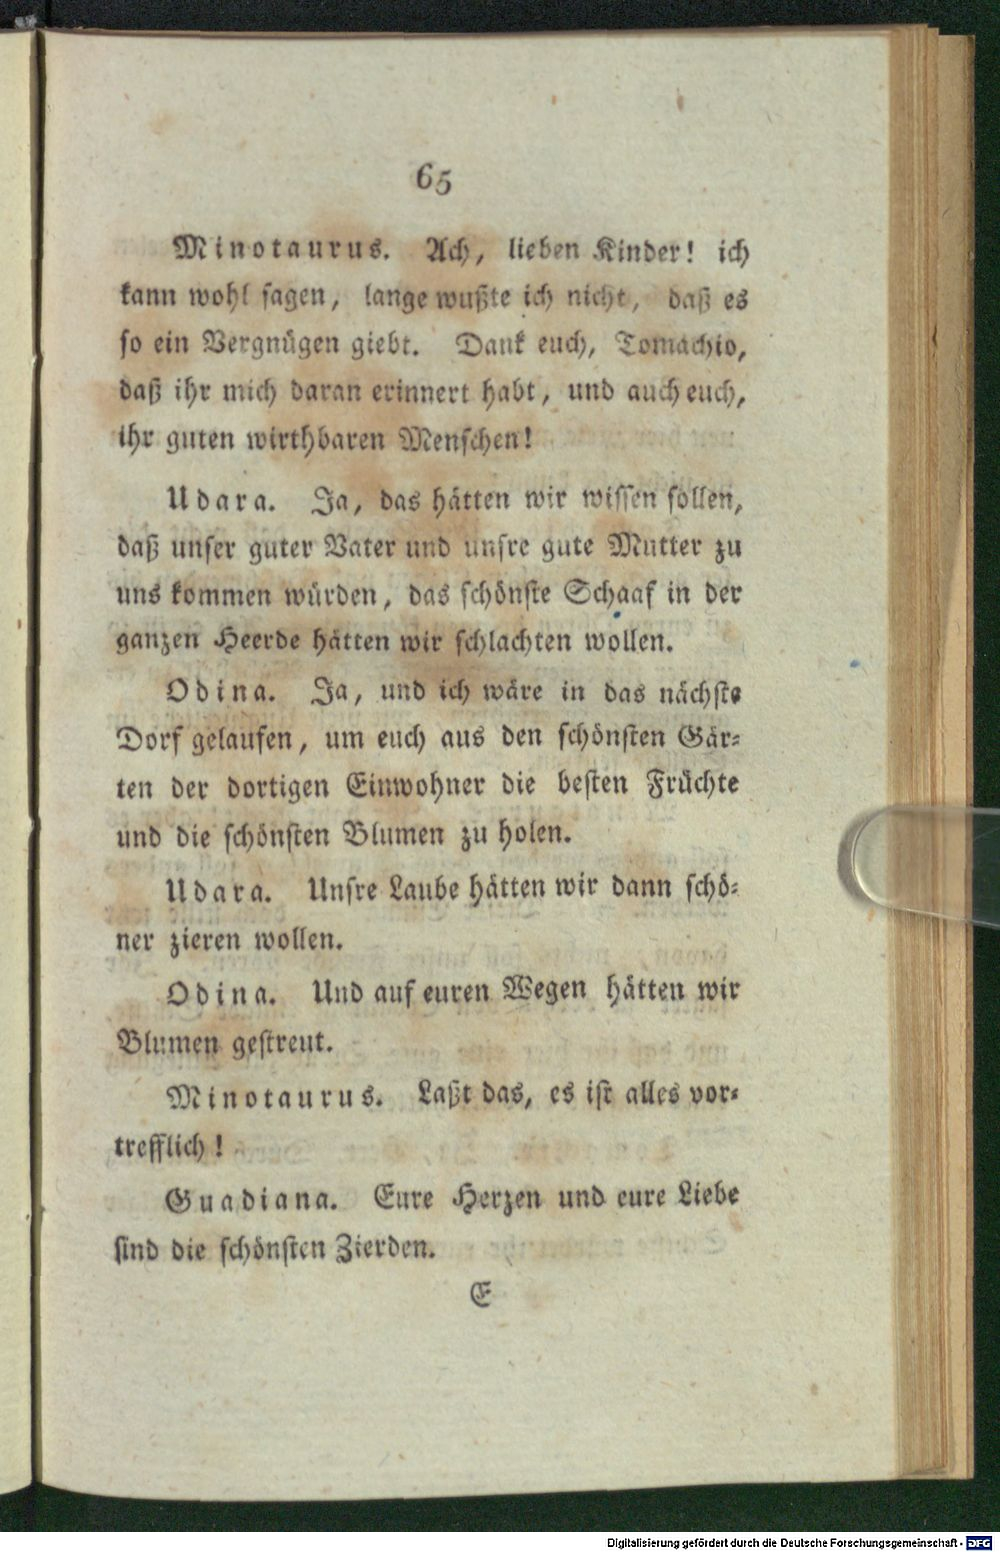 65
Minotaurus. Ach, lieben Kinder! ich
kann wohl sagen, lange wußte ich nicht, daß es
so ein Vergnügen giebt. Dank euch, Tomachio,
daß ihr mich daran erinnert habt, und auch euch,
ihr guten wirthbaren Menschen!
Udara. Ja, das hätten wir wissen sollen,
daß unser guter Vater und unsre gute Mutter zu
uns kommen würden, das schönste Schaaf in der
ganzen Heerde hätten wir schlachten wollen.
Odina. Ja, und ich wäre in das nächste
Dorf gelaufen, um euch aus den schönsten Gär-
ten der dortigen Einwohner die besten Früchte
und die schönsten Blumen zu holen.
Udara. Unsre Laube hätten wir dann schö-
ner zieren wollen.
Odina. Und auf euren Wegen hätten wir
Blumen gestreut.
Minotaurus. Laßt das, es ist alles vor-
trefflich!
Guadiana. Eure Herzen und eure Liebe
sind die schönsten Zierden.
E
Digitalisierung gefördert durch die Deutsche Forschungsgemeinschaft - DFG